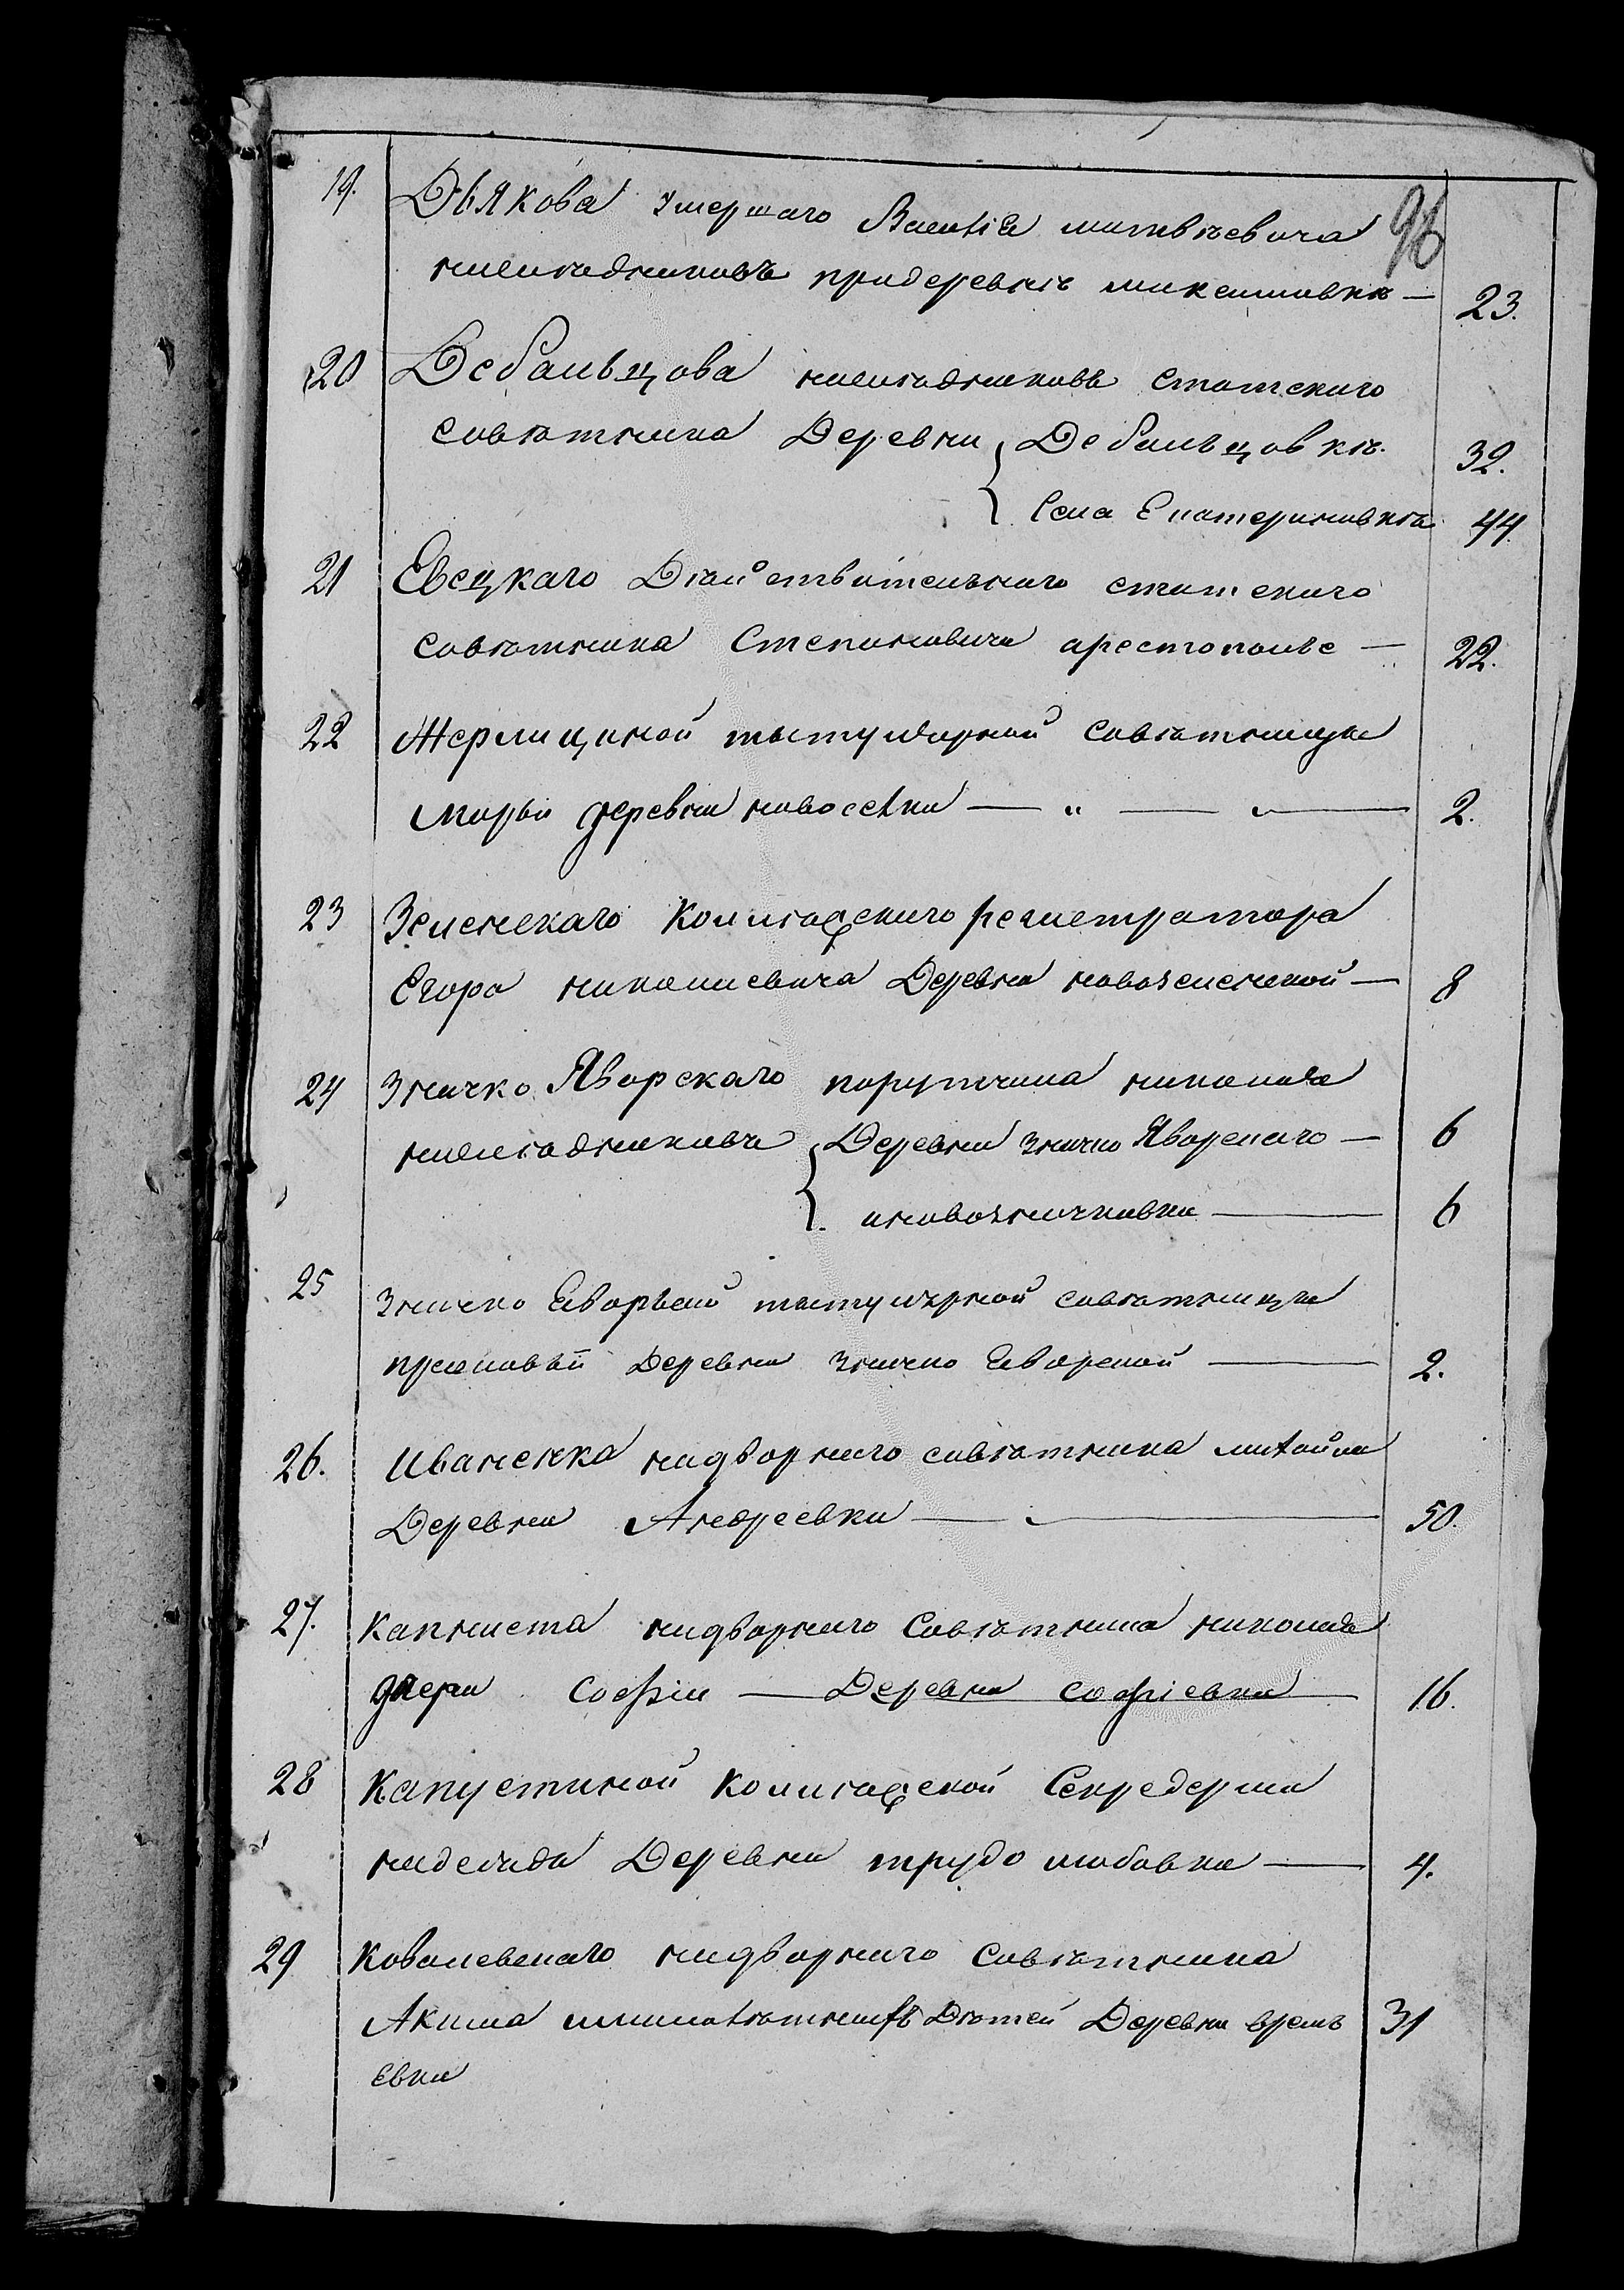 96
19. Дьякова умершаго Василія матвѣевича
наслѣдниковъ придеревнѣ максимовкѣ — 23.
20 Дебальцова наслѣдниковъ статскаго
совѣтника Деревни Дебальцовкѣ. 32.
Села Екатериновкѣ 44.
21 Евецкаго Дѣйствительнаго статскаго
совѣтника Степановича арестополье — 22.
22 Жерлицыной тытулярной совѣтницы
Марьи деревни новоселки — „ — 2.
23 Зеленскаго Коллѣжскаго регистратора
Егора николаевича Деревни новозеленской — 8
24 Значко Яворскаго порутчика николая
наслѣдниковъ Деревни значко Яворскаго — 6
иновозначковки — 6
25 значко Еворьской тытулярной совѣтницы
просковьи Деревни значко Еворской — 2.
26. Иваненка надворнаго совѣтника михайла
Деревни Андреевки — 50.
27. Капниста надворнаго Совѣтника николая
дчери Софіи — Деревни софіевки 16.
28 Капустиной Коллѣжской Секредерши
надежда Деревни трудолюбовка — 4.
29 Ковалевскаго надворнаго Совѣтника
Акима малолѣтнихъ Дѣтей Деревни времъ 31
евки